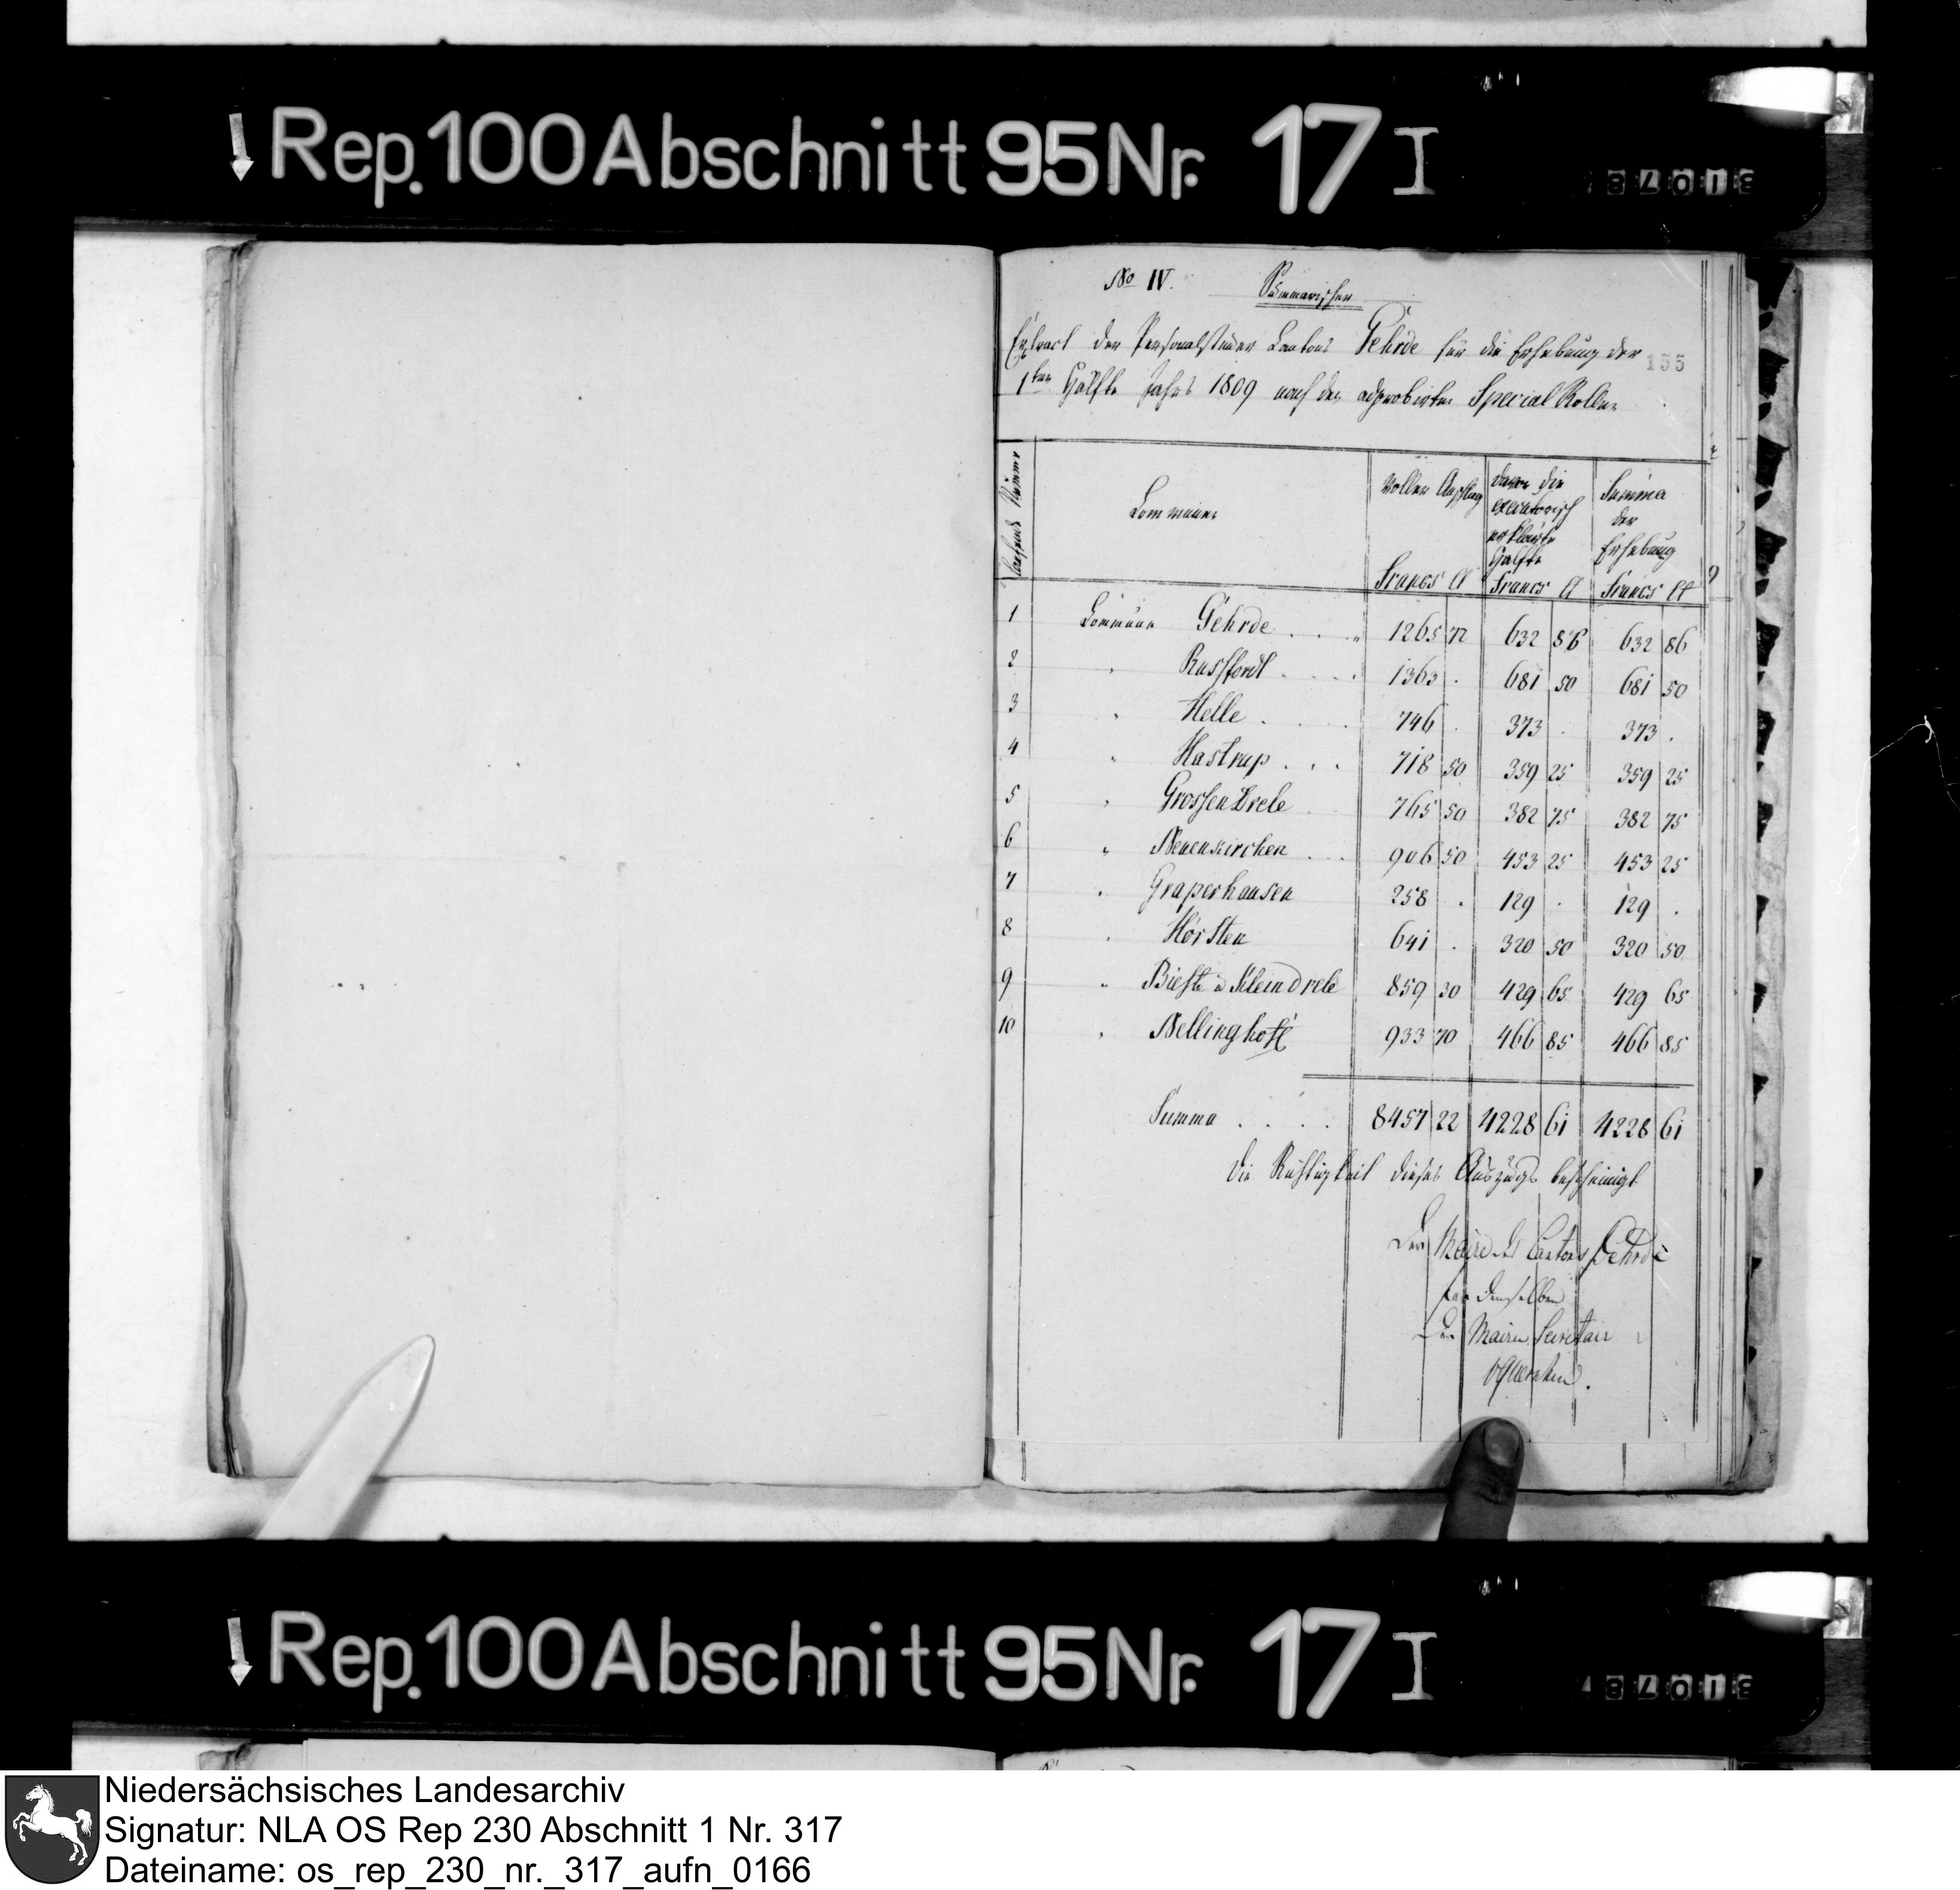 Rep. 100 Abschnitt 95 Nr. 17 I
No IV. Summarischer
Extract der Personalsteuer Cantons Gehrde für die Erhebung der
155
1ten Hälfte Jahrs 1809 nach den approbirten Special Rollen
laufende Nummer
Communen
voller Anschlag
Francs Ct
davon die executorisch erklärte Hälfte
Francs Ct
Summa der Erhebung
Francs Ct
1 Commune Gehrde . . . 1265 72 632 86 632 86
2 " Russfordt . . . . 1363 . 681 50 681 50
3 " Helle . . . 746 . 373 . 373 .
4 " Hastrup . . . 718 50 359 25 359 25
5 " Grossen Drele 765 50 382 75 382 75
6 " Neuenkirchen . . . 906 50 453 25 453 25
7 " Graperhausen 258 . 129 . 129 .
8 " Hörsten 641 . 320 50 320 50
9 " Bieste u Klein Drele 859 30 429 65 429 65
10 " Nellinghoff 933 70 466 85 466 85
Summa . . . . 8457 22 4228 61 4228 61
Die Richtigkeit dieses Auszugs bescheinigt
Der Maire des Cantons Gehrde
für denselben
Der Mairie Secretair
Rep. 100 Abschnitt 95 Nr. 17 I
Niedersächsisches Landesarchiv
Signatur: NLA OS Rep 230 Abschnitt 1 Nr. 317
Dateiname: os_rep_230_nr._317_aufn_0166